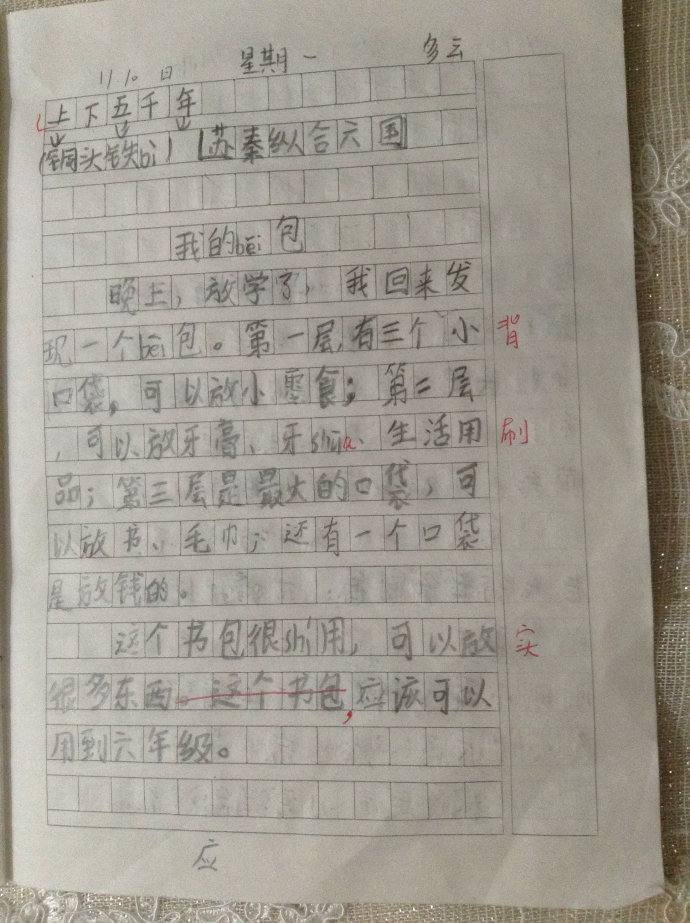 11.10日 星期一 多云
上下五千年
(铜头铁bì) 【苏秦纵合六国
我的bēi包
晚上，放学了，我回来发
现一个bēi包。第一层有三个小 背
口袋，可以放小零食；第二层
，可以放牙膏、牙shua、生活用 刷
品；第三层是最大的口袋，可
以放书、毛巾；还有一个口袋
是放钱的。
这个书包很shí用，可以放 实
很多东西。这个书包，应该可以
用到六年级。
应